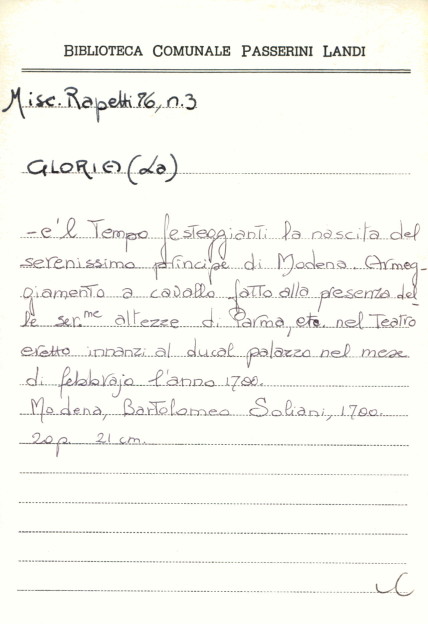 BIBLIOTECA COMUNALE PASSERINI LANDI
Misc. Rapetti 76, n. 3
GLORIA (La)
- e 'l Tempo festeggianti la nascita del
serenissimo principe di Modena. Armeg-
giamento a cavallo fatto alla presenza del-
le ser.me altezze di Parma, etc. nel Teatro
eretto innanzi al ducal palazzo nel mese
di febbrajo l'anno 1700.
Modena, Bartolomeo Soliani, 1700.
20 p. 21 cm.